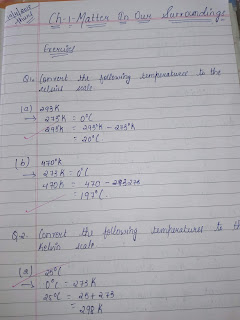 Ch-1-Matter In Our Surroundings
Exercises
Q1. Convert the following temperatures to the
celcius scale
(a) 293K
→ 273K = 0°C
293K = 293° - 273°
= 20°C
(b) 470°K
→ 273K = 0°C
470K = 470 -
= 197°C
Q.2. Convert the following temperatures to the
Kelvin scale.
(a) 25°C
→ 0°C = 273K
25°C = 25+273
= 298K